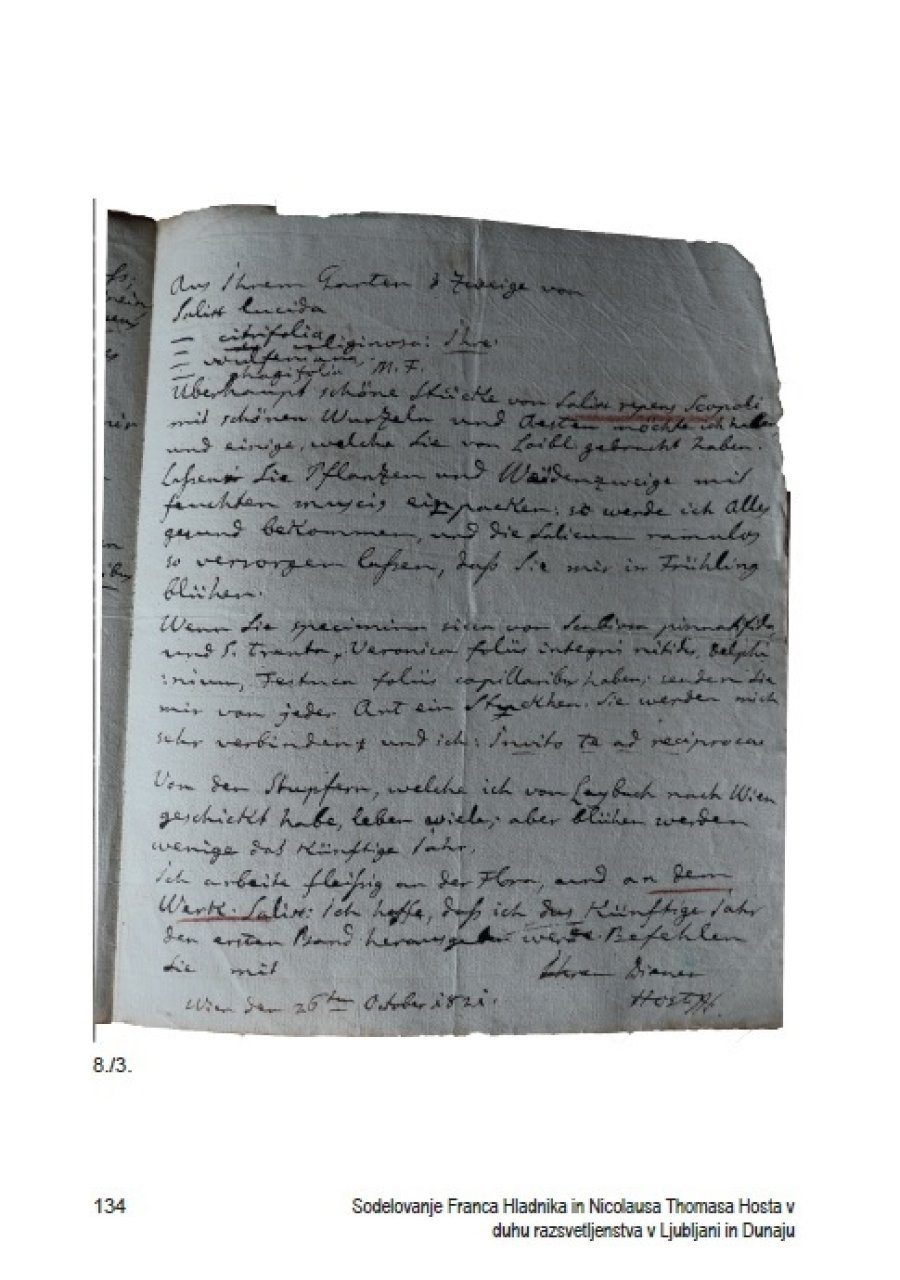 Aus Ihrem Garten 3 Zweige von
Salix lucida
— citrifolia
— religiosa: Ihre.
— wulfeniana,
— phagifolia M. F.
Überhaupt schöne Stücke von Salix repens Scopoli
mit schönen Wurzeln und Aesten möchte ich haben
und einige, welche Sie von Loibl gebracht haben.
Laßen Sie Pflanzen und Weidenzweige mit
feuchten muscis einpacken: so werde ich Alles
gesund bekommen, und die Salicum ramulos
so versorgen laßen, daß Sie mir in Frühling
blühen.
Wenn Sie specimina sicca von Scabiosa pinnatifida
und S. Trenta, Veronica foliis integri nitidis, Delphi
:nium, Festuca foliis capillaribus haben; senden Sie
mir von jeder Art ein Stückchen. Sie werden mich
sehr verbinden und ich: Invito te ad reciproca
Von den Stupfern, welche ich von Laybach nach Wien
geschickt habe, leben viele; aber blühen werden
wenige das Künftige Jahr.
Ich arbeite fleißig an der Flora, und an dem
Werk: Salix: Ich hoffe, daß ich das Künftige Jahr
den ersten Band herausgeben werde. Befehlen
Sie mit Ihren Diener
Wien den 26ten October 1821. Host
8./3.
134
Sodelovanje Franca Hladnika in Nicolausa Thomasa Hosta v
duhu razsvetljenstva v Ljubljani in Dunaju